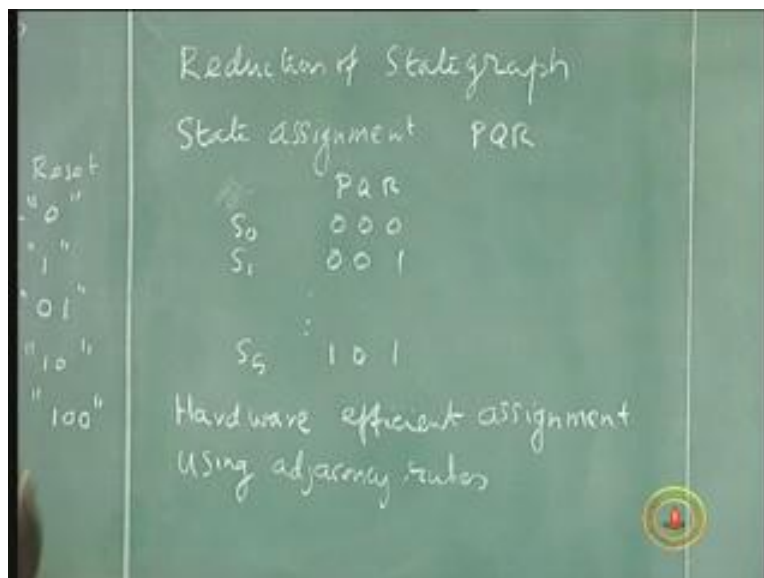 Reset
"0"
"1"
"01"
"10"
"100"
Reduction of Stategraph
State assignment PQR
PQR
S0 000
S1 001
:
S5 101
Hardware efficient assignment
Using adjacency rules